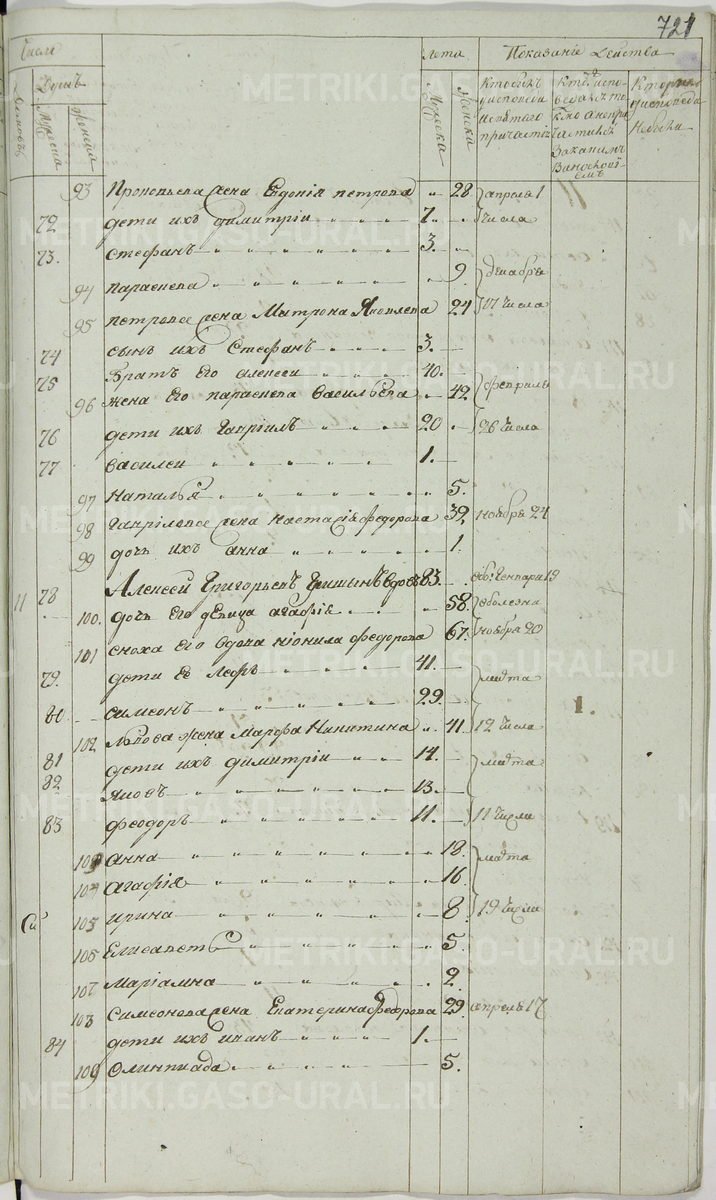 721
Числа
Лета
Показаніе Действа
Домовъ
Душъ
Мужеска
Женска
Мужеска
Женска
Кто былъ у исповеди и святаго причастія
Кто испо- ведался то- кмо а непри- частился
Кто не былъ у исповеди
93 Прокопьева жена Евдокія петрова „ 28 апреля 1
72 дети ихъ димитріи 7. числа
73. стефанъ 3.
94 параскева 9 декабря
95 петрова жена Матрона Яковлева 24 17 числа
74 сынъ ихъ Стефанъ 3.
75 Братъ Его алексеи 40.
96 жена Его параскева васильева 42 февраля
76 дети ихъ Гавріилъ 20 26 числа
77 василеи 1.
97 Наталья 5.
98 Гаврілова жена настасія федорова 39 ноября 24
99 дочь ихъ анна 1.
11 78 Алексей Григорьевъ Гришинъ вдовъ 83. генваря 19
100. дочь Его девица агафія 58.
101 сноха его вдова неонила федорова 67. ноября 20
79. дети Ее Левъ 41. марта
80 симеонъ 29.
102 Львова жена Марфа Никитина 41 12 числа
81 дети ихъ димитріи 14. марта
82 яковъ 13.
83 феодоръ 11. 11 числа
103 анна 18. марта
104 агафія 16
105 ирина 8 19 числа
106 Елисаветъ 5.
107 Маріамна 2
108 Симеонова жена Екатерина Федорова 29 апреля 17
84 дети ихъ иванъ 1.
109 Олимпиада 5.
1.
METRIKI.GASO-URAL.RU